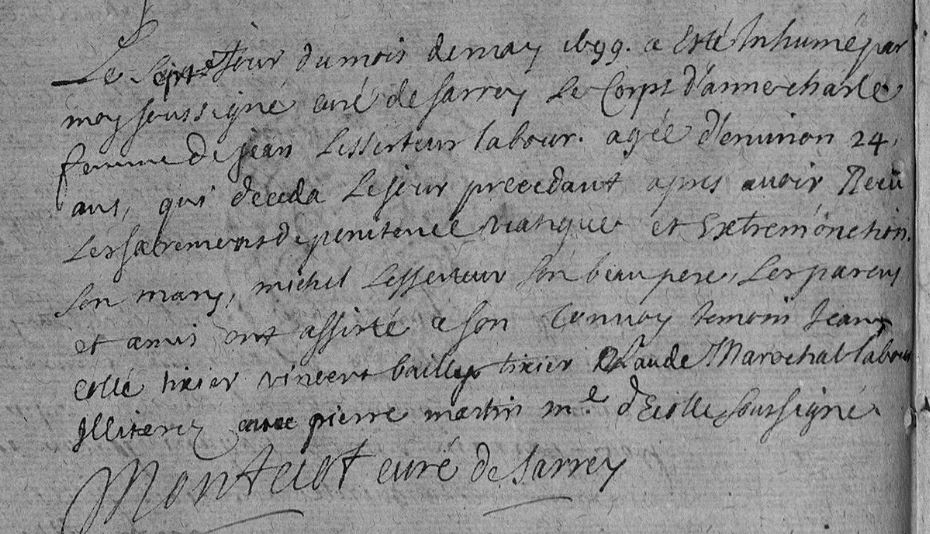 Le Septe Jour du mois de may 1699. a Esté Inhumé par
moy soussigné curé de Sarrey Le Corps d'anne charle
femme de jean Lesserteur labour. agée d'environ 24
ans, qui deceda Le jour precedant apres avoir Receu
Les sacrements de penitence viatique et Extremonction.
Son mary, michel Lesserteur son beau pere, Les parens
et amis ont assisté a son Convoy temoin Jean
collé tixier vincent bailly tixier Claude Marechal labour
Illiterez avec pierre martin m.e d'Ecolle soussigné
Montuot curé de Sarrey